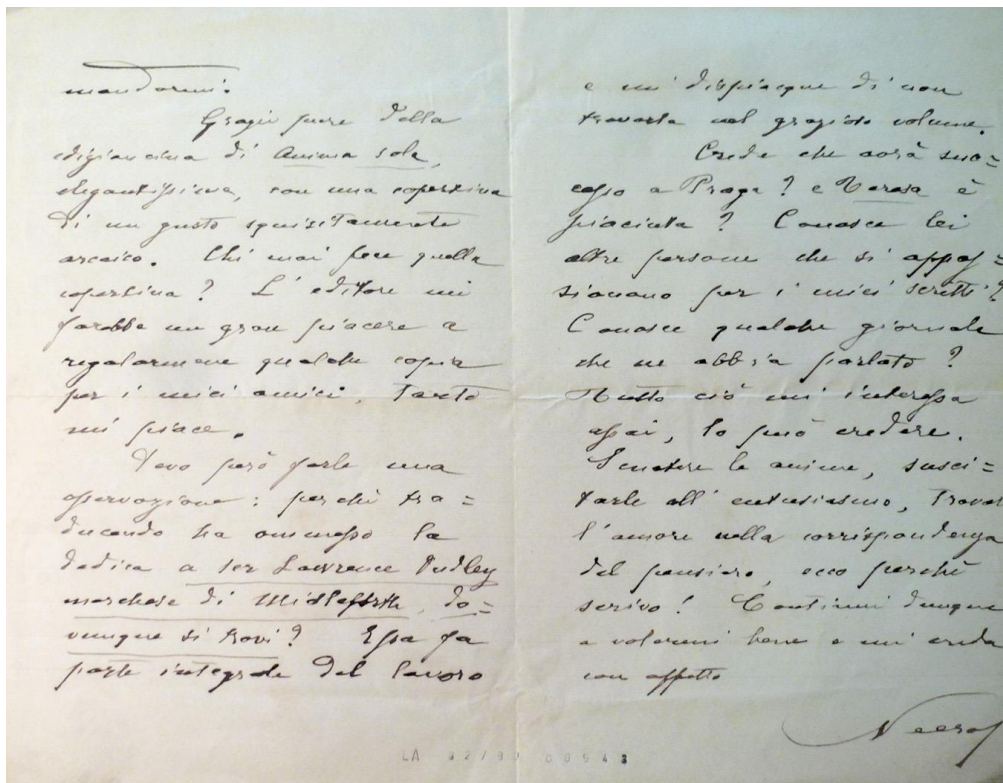 mandarmi.
Grazie pure della
edizioncina di Anima sola,
elegantissima, con una copertina
di un gusto squisitamente
arcaico. Chi mai fece quella
copertina? L'editore mi
farebbe un gran piacere a
regalarmene qualche copia
per i miei amici, tanto
mi piace.
Devo però farle una
osservazione: perchè tra=
ducendo ha ommesso la
dedica a ser Lawrence Dudley
marchese di Middleforth, do=
vunque si trovi? Essa fa
parte integrale del lavoro
e mi dispiacque di non
trovarla nel grazioso volume.
Crede che avrà suc=
cesso a Praga? e Teresa è
piaciuta? Conosce lei
altre persone che si appas=
sionano per i miei scritti?
Conosce qualche giornale
che ne abbia parlato?
Tutto ciò mi interessa
assai, lo può credere.
Scuotere le anime, susci=
tarle all'entusiasmo, trovar
l'amore nella corrispondenza
del pensiero, ecco perchè
scrivo! Continui dunque
a volermi bene e mi creda
con affetto
Neera
LA 32/80 00543